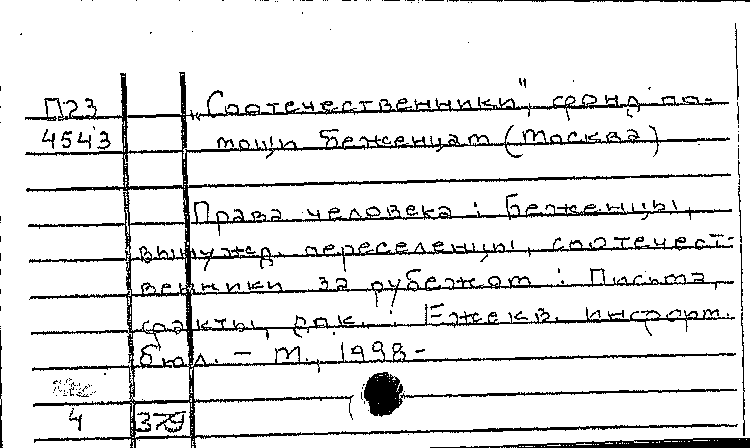 П23 „Соотечественники", фонд по-
4543 мощи беженцам (Москва)
Права человека : Беженцы,
вынужд. переселенцы, соотечест-
венники за рубежом : Письма,
факты, док. : Ежекв. информ.
бюл. - М., 1998-
4 379